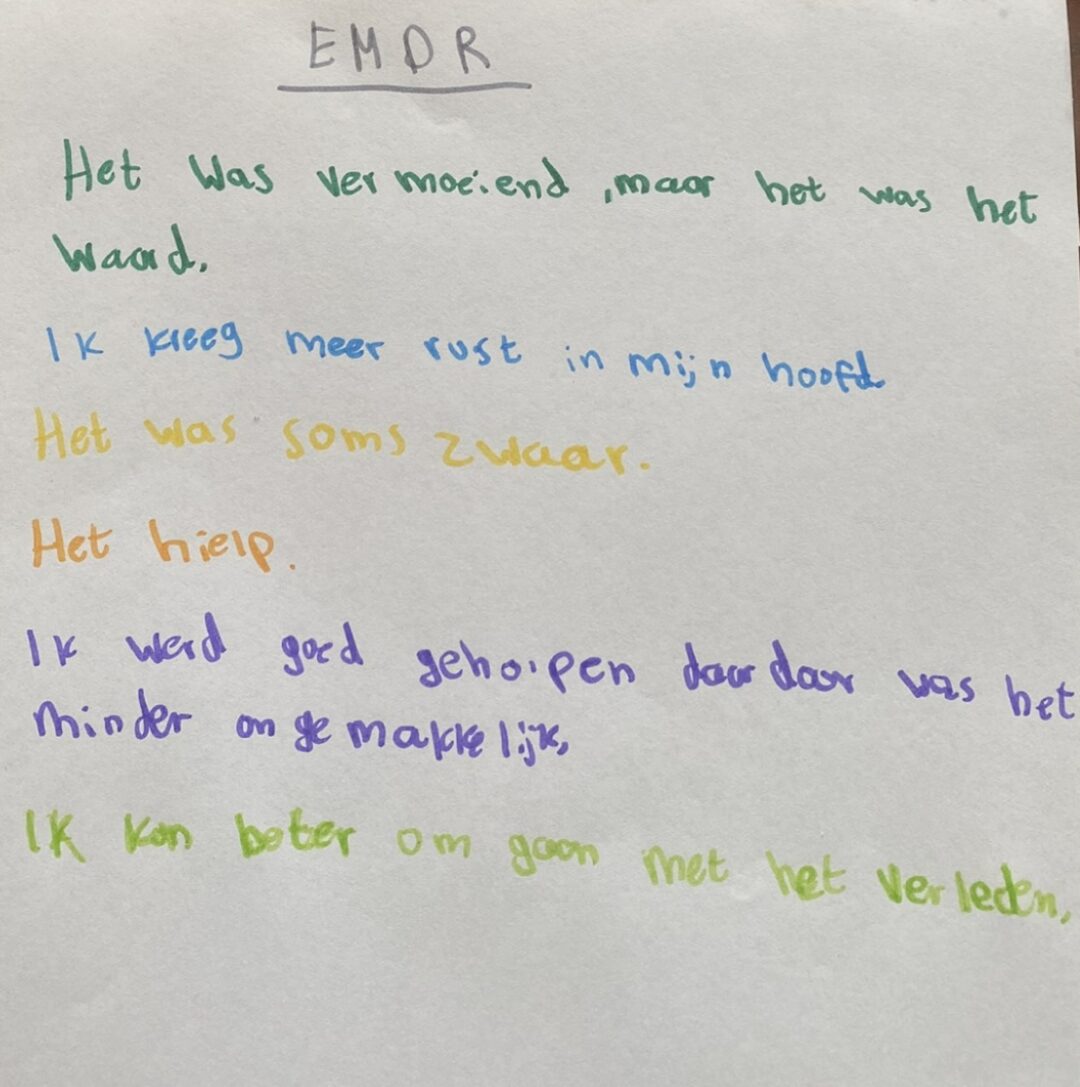 EMDR
Het was vermoeiend, maar het was het
waard.
Ik kreeg meer rust in mijn hoofd
Het was soms zwaar.
Het hielp.
Ik werd goed geholpen daardoor was het
minder ongemakkelijk,
Ik kan beter om gaan met het verleden,